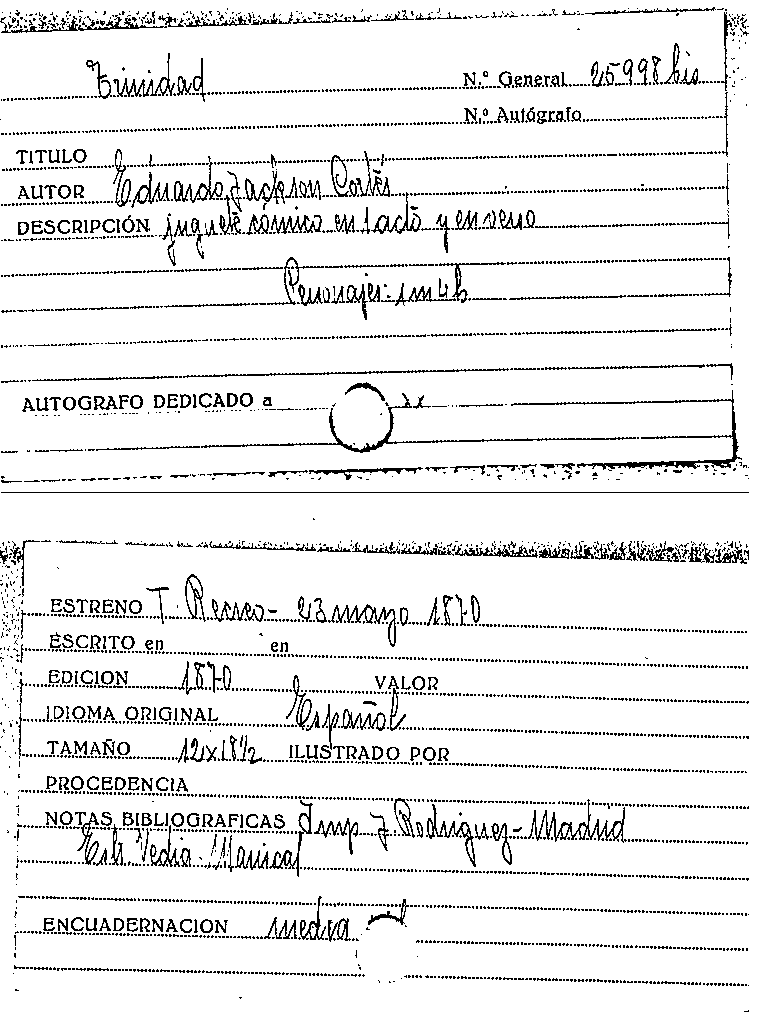 Trinidad N.º General 25998 bis
N.º Autógrafo
TITULO
AUTOR Eduardo Jackson Cortés
DESCRIPCIÓN juguete cómico en 1 acto y en verso
Personajes: 1m 4h
AUTOGRAFO DEDICADO a
ESTRENO T. Recreo - 23 mayo 1870
ESCRITO en en
EDICION 1870 VALOR
IDIOMA ORIGINAL Español
TAMAÑO 12x18½ ILUSTRADO POR
PROCEDENCIA
NOTAS BIBLIOGRAFICAS Imp J. Rodriguez - Madrid
Vedia
ENCUADERNACION media